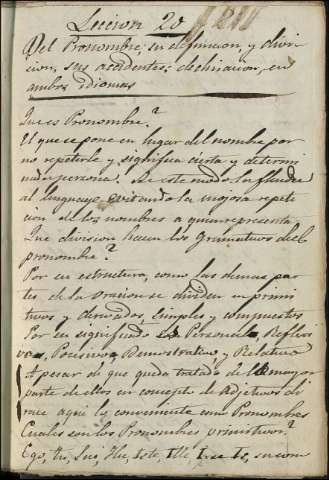 Leccion 20
Del Pronombre, su definicion, y divi
cion, sus acidentes, declinacion, en
ambos idiomas
Que es Pronombre?
El que se pone en lugar del nombre por
no repetirle y significa cierta y determi
nada persona. De este modo la fluides
al lenguaje, evitando la enojosa repeti
cion de los nombres a quien representa
Que division hacen los Gramaticos del
pronombre?
Por su estructura, como las demas par
tes de la oracion se dividen en primi
tivos y derivados, Simples y compuestos
Por su significado en Personales, Reflexi
vos, Posesivos, Demostrativos, y Relativos
A pesar de que queda tratado de la mayor
parte de ellos en concepto de Adjetivos di
rase aqui lo conveniente como Pronombres
Cuales son los Pronombres primitivos?
Ego, tu, Sui, Hic, Iste, Ille, Ipse, Is, su com